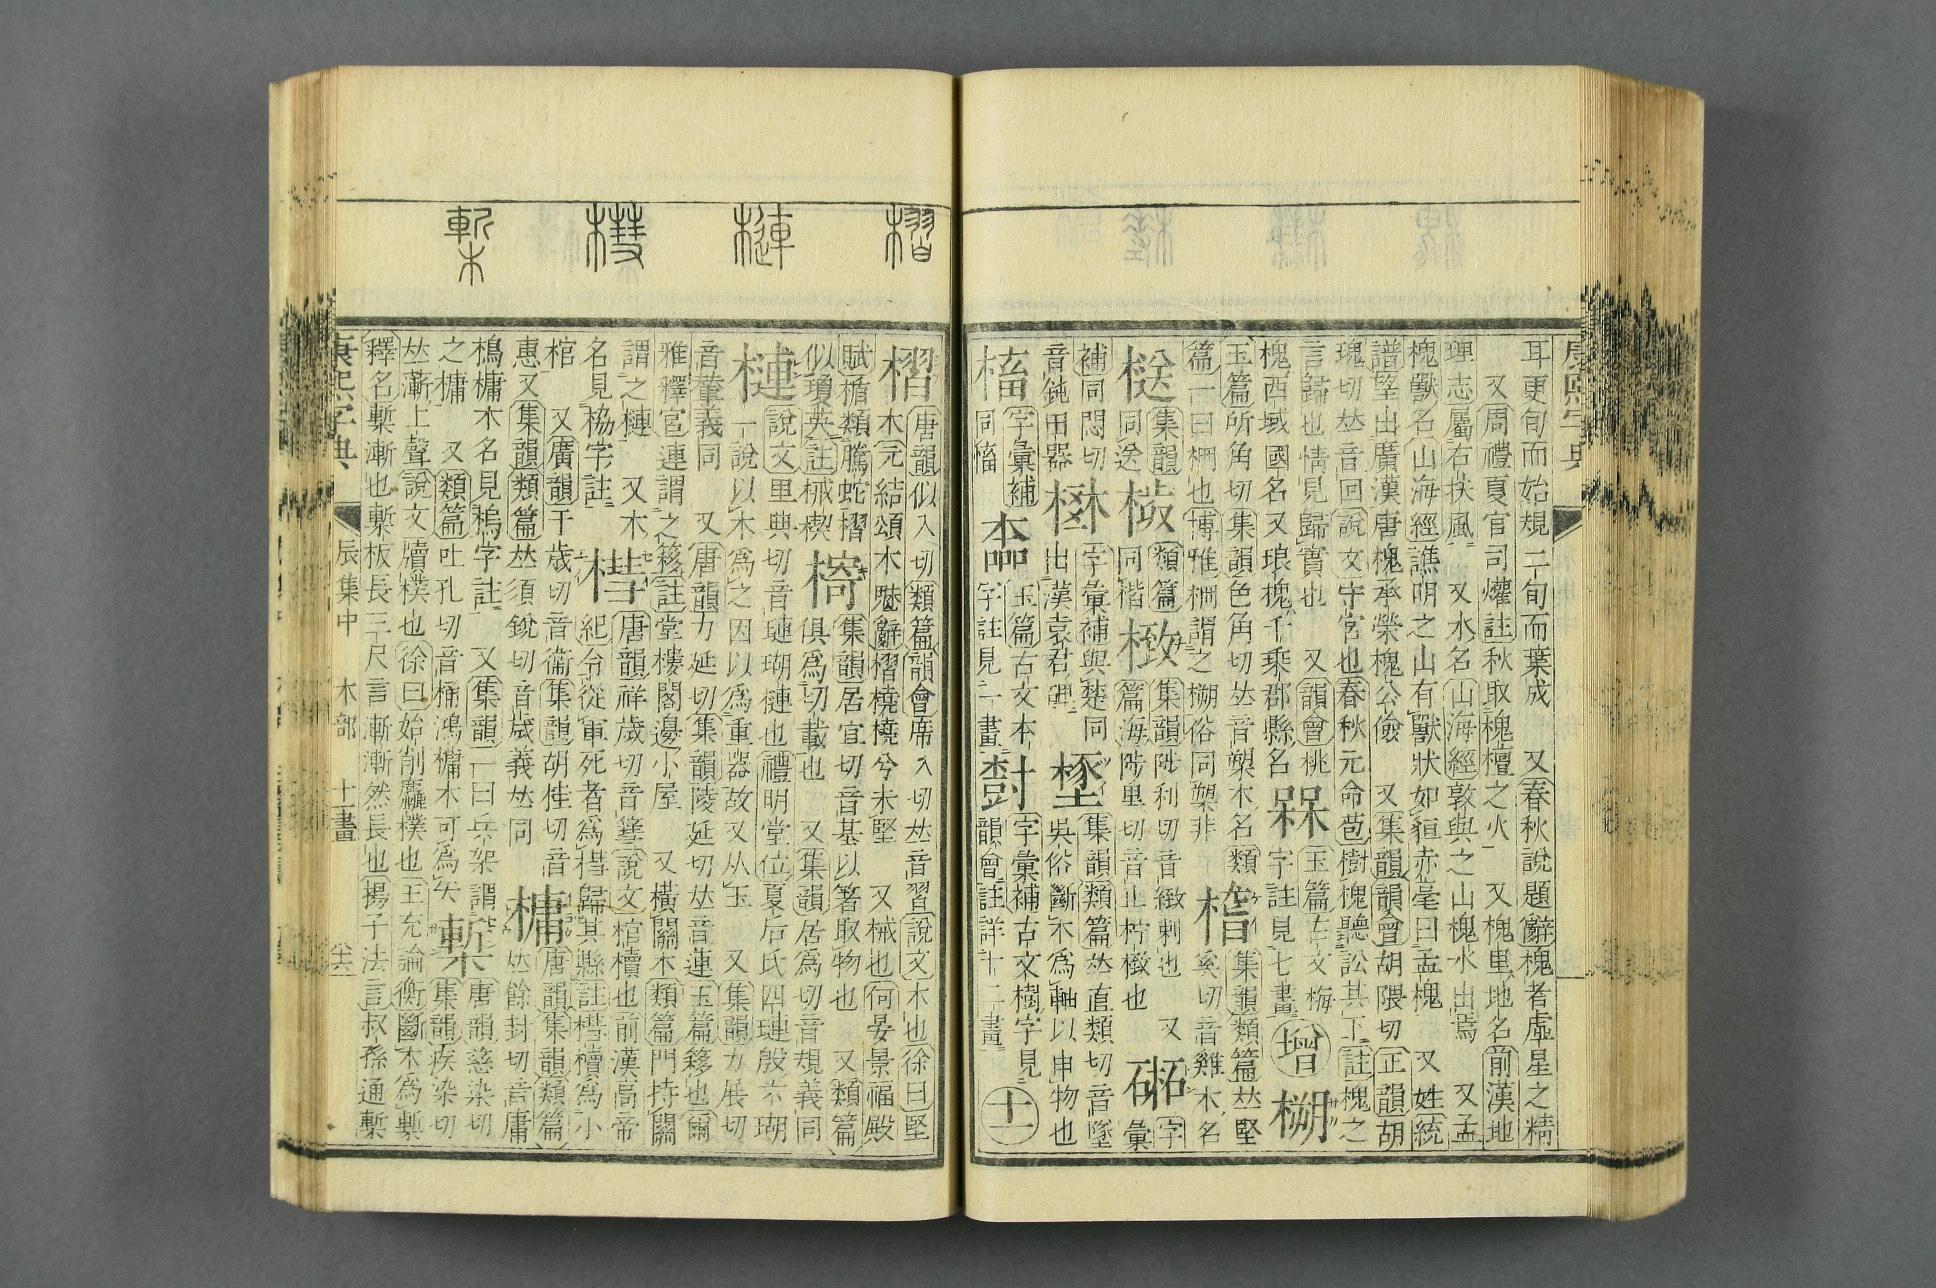 耳更旬而始規二旬而葉成 又春秋說題辭槐者虛星之精
又周禮夏官司爟註秋取槐檀之火 又槐里地名前漢地
理志屬右扶風 又水名山海經敦與之山槐水出焉 又孟
槐獸名山海經譙明之山有獸狀如貆赤毫曰孟槐 又姓統
譜望出廣漢唐槐承榮槐公儉 又集韻韻會胡隈切正韻胡
瑰切𠀤音回說文守宮也春秋元命苞樹槐聽訟其下註槐之
言歸也情見歸實也 又韻會桃 玉篇古文梅
槐西域國名又琅槐千乘郡縣名 槑 字註見七畫 增 槊
玉篇所角切集韻色角切𠀤音槊木名類
篇一曰棚也博雅棚謂之槊俗同槊非 榰 集韻類篇𠀤堅奚切音雞木名
槂 集韻同送 類篇同楷 㮹 集韻陟利切音緻刺也 又
篇海陟里切音止柠檓也 字彙
補同悶切音鈍田器 字彙補與楚同出漢袁君碑 集韻類篇𠀤直類切音墜吳俗斷木為軸以申物也
字彙補同榃 玉篇古文本字註見一畫 字彙補古文樹字見韻會註詳十二畫 十一
槢 槤 㯌 槧
槢 唐韻似入切類篇韻會席入切𠀤音習說文木也徐曰堅
木元結頌木魅辭槢橈橈兮未堅 又械也何晏景福殿
賦楯類騰蛇槢 集韻居宜切音基以箸取物也 又類篇
似瓊英註械楔 㰗 俱為切載也 又集韻居為切音規義同
槤 說文里典切音璉瑚槤也禮明堂位夏后氏四璉殷六瑚
一說以木為之因以為重器故又从玉 又集韻力展切
音輦義同 又唐韻力延切集韻陵延切𠀤音連玉篇簃也爾
雅釋宮連謂之簃註堂樓閣邊小屋 又橫關木類篇門持關
謂之槤 又木 槥 唐韻祥歲切音篲說文棺櫝也前漢高帝
名見栛字註 紀令從軍死者為槥歸其縣註槥櫝為小
棺 又廣韻于歲切音衞集韻胡桂切音 唐韻集韻類篇
惠又集韻類篇𠀤須銳切音歲義𠀤同 槦 𠀤餘封切音庸
槝槦木名見槝字註 又集韻一曰兵架謂 唐韻慈染切
之槦 又類篇吐孔切音桶鴻槦木可為矢 槧 集韻疾染切
𠀤漸上聲說文牘樸也徐曰始削麤樸也王充論衡斷木為槧
釋名槧漸也槧板長三尺言漸漸然長也揚子法言叔孫通槧
康熙字典 辰集中 木部 十一畫